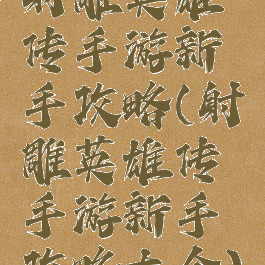 射雕英雄
传手游新
手攻略(射
雕英雄传
手游新手
攻略大全)